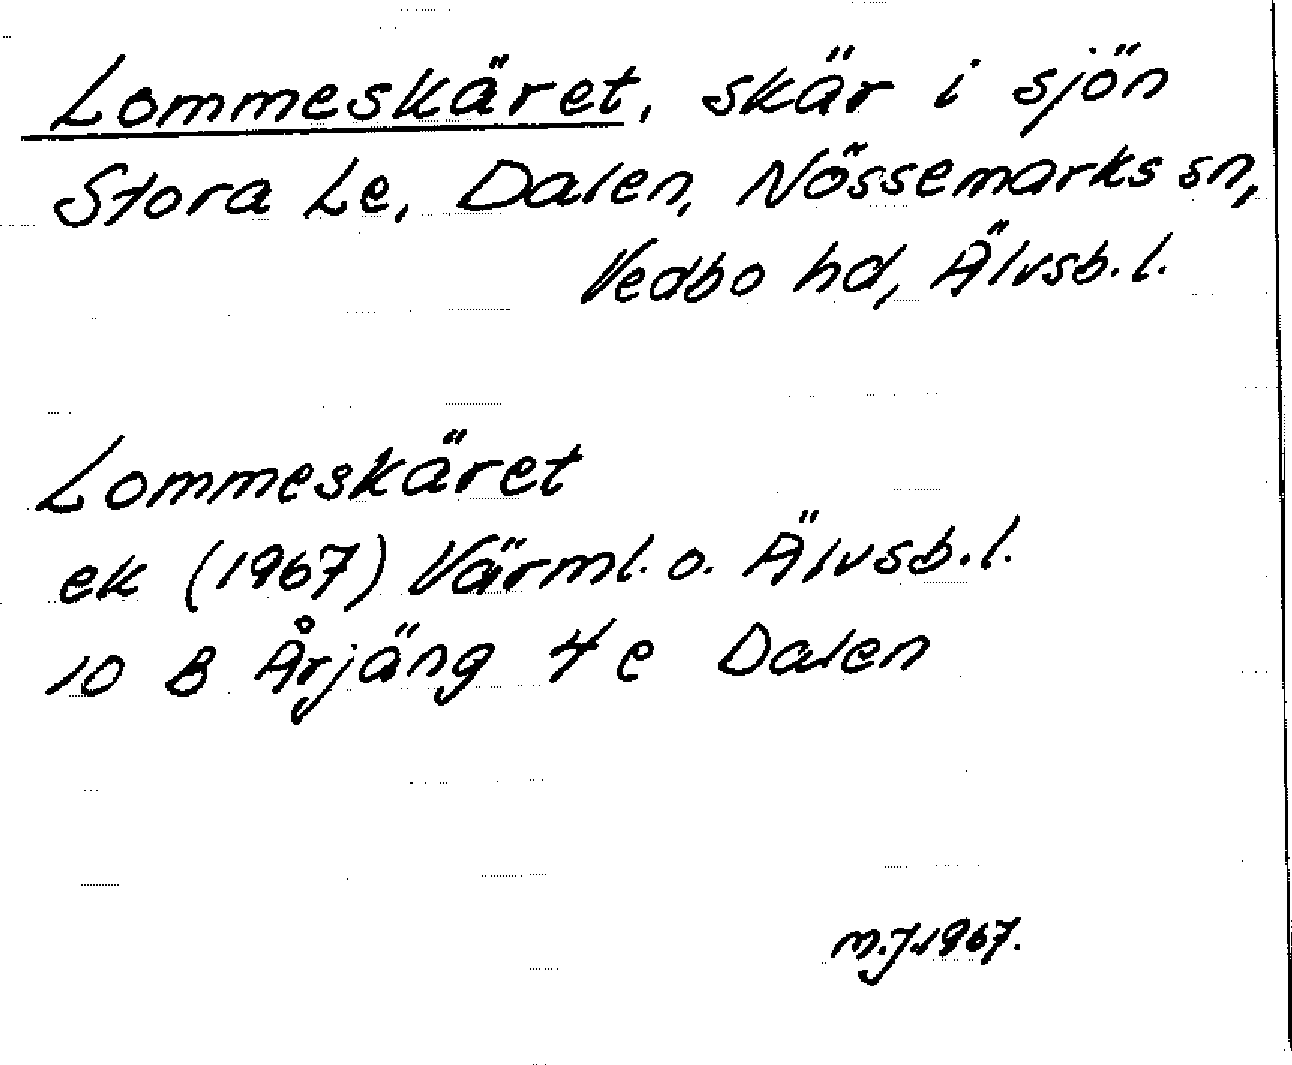 Lommeskäret, skär i sjön
Stora Le, Dalen, Nössemarks sn,
Vedbo hd, Älvsb.l.
Lommeskäret
ek (1967) Värml. o. Älvsb.l.
10 B Årjäng 4 e Dalen
M.J.1967.